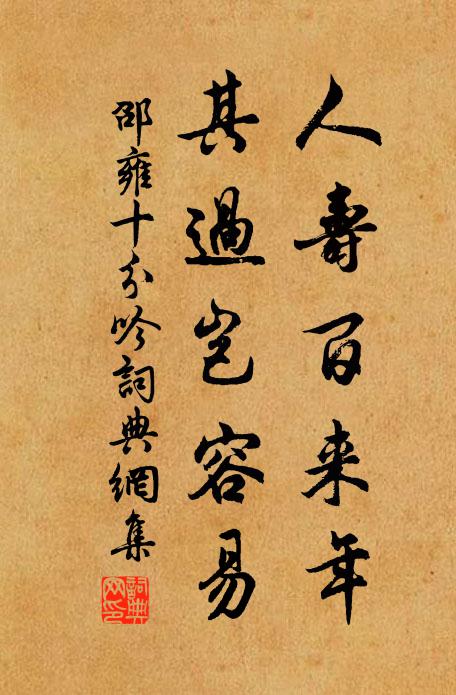 人壽百来年
其過豈容易
邵雍十分吟詞典網集
詞典网印